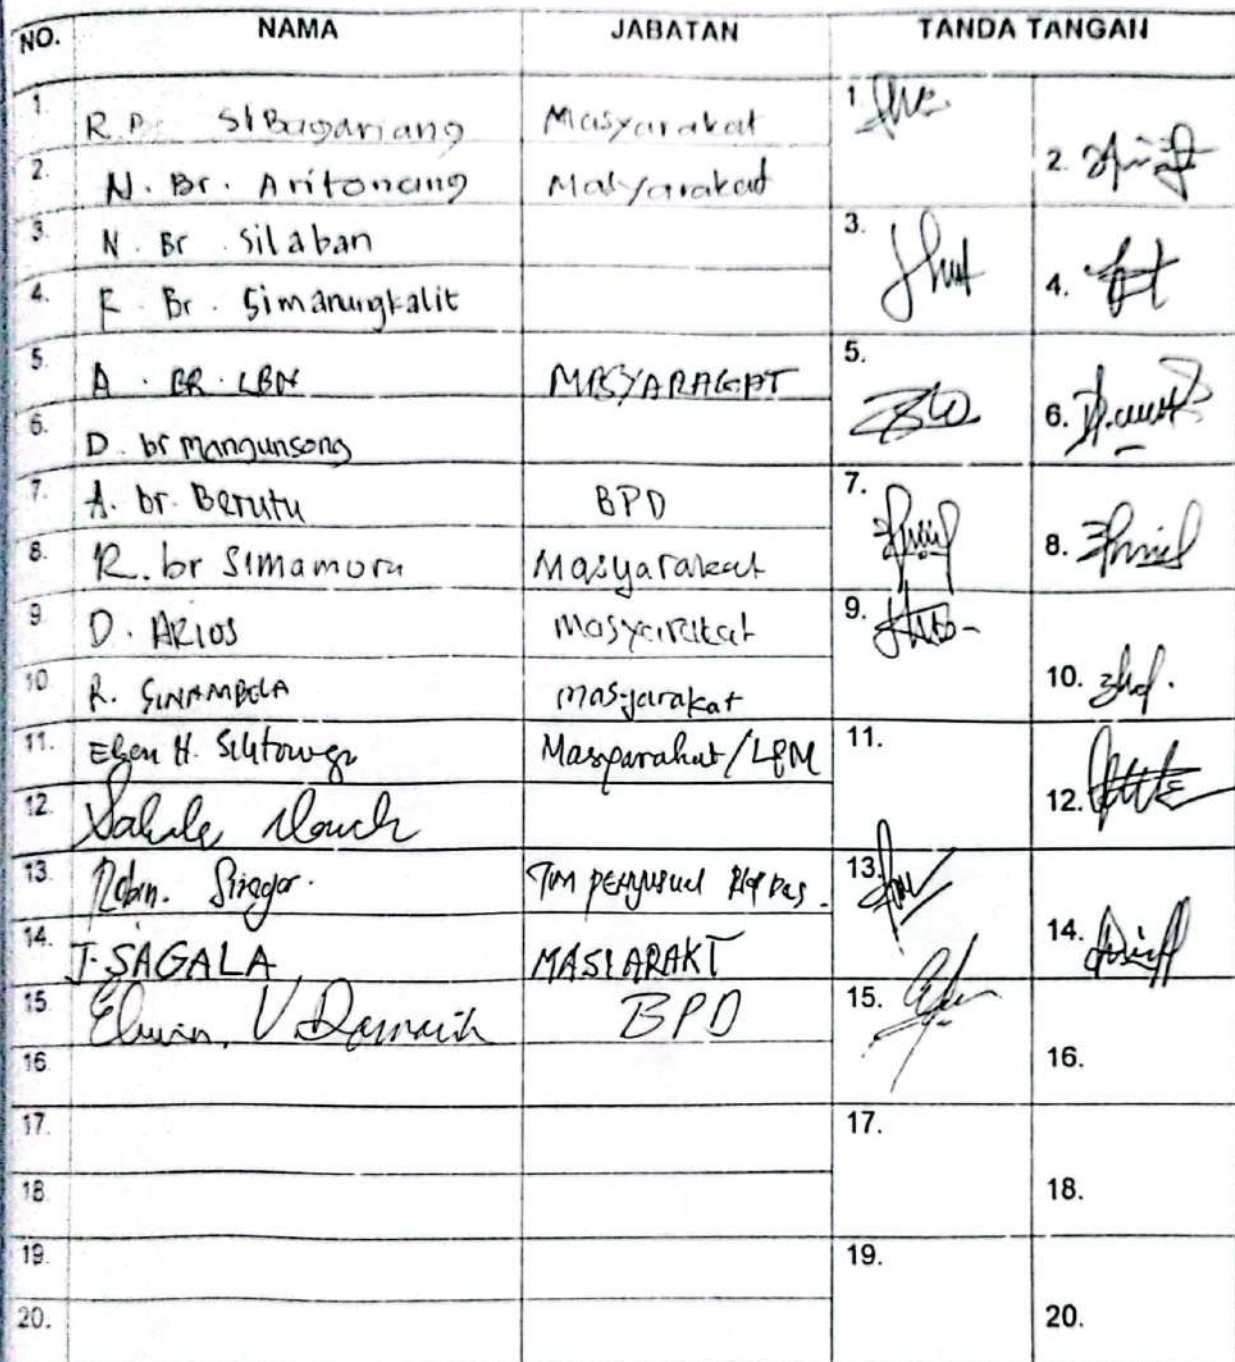 NO. NAMA JABATAN TANDA TANGAN
1. R. Br SiBagariang Masyarakat 1.
2. N. Br. Aritonang Masyarakat 2.
3. N. Br. Silaban 3.
4. R. Br. Simanungkalit 4.
5. A. BR. LBN MASYARAKAT 5.
6. D. br Mangunsong 6.
7. A. br. Berutu BPD 7.
8. R. br Simamora Masyarakat 8.
9. D. ARIOS Masyarakat 9.
10. R. SINAMBELA masyarakat 10.
11. Eben H. Masyarakat/LPM 11.
12. 12.
13. Robin. Siregar. Tim penyusun 13.
14. J. SAGALA MASIARAKT 14.
15. V. Damanik BPD 15.
16. 16.
17. 17.
18. 18.
19. 19.
20. 20.